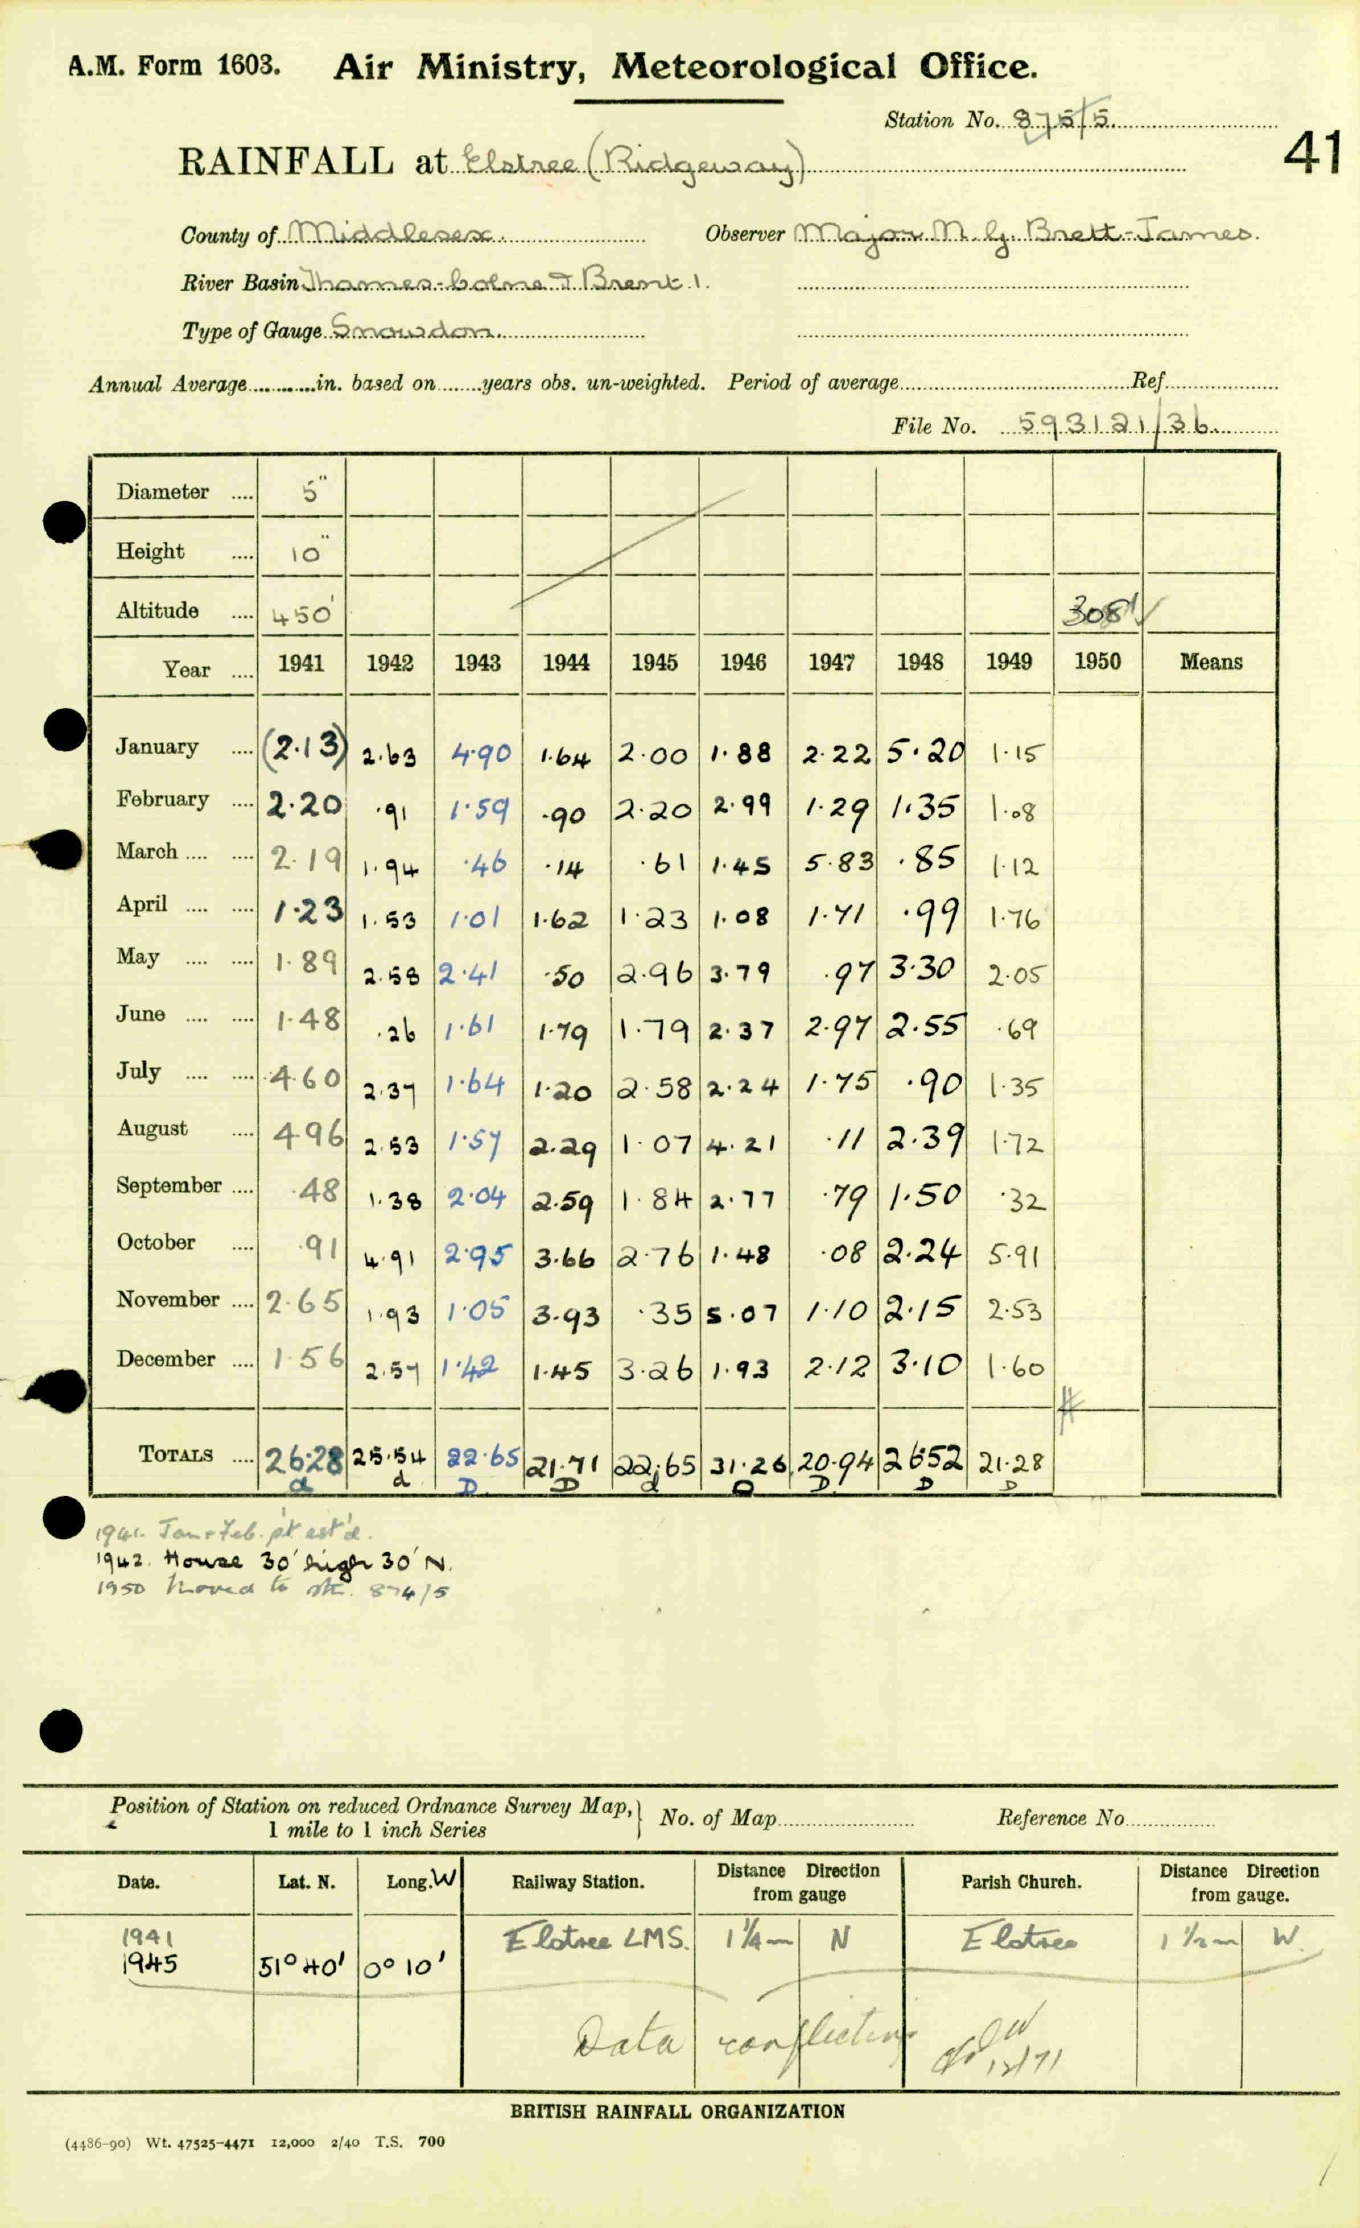 A.M. Form 1603. Air Ministry, Meteorological Office.
Station No. 875/5.
41
RAINFALL at Elstree (Ridgeway)
County of Middlesex. Observer Major N. G. Brett-James.
River Basin Thames-Colne & Brent 1.
Type of Gauge Snowdon.
Annual Average............in. based on.......years obs. un-weighted. Period of average...............Ref...............
File No. 593121/36.
Diameter .... 5"
Height .... 10"
Altitude .... 450' 308'
Year .... 1941 1942 1943 1944 1945 1946 1947 1948 1949 1950 Means
January .... (2.13) 2.63 4.90 1.64 2.00 1.88 2.22 5.20 1.15
February .... 2.20 .91 1.59 .90 2.20 2.99 1.29 1.35 1.08
March .... .... 2.19 1.94 .46 .14 .61 1.45 5.83 .85 1.12
April .... .... 1.23 1.53 1.01 1.62 1.23 1.08 1.71 .99 1.76
May .... .... 1.89 2.58 2.41 .50 2.96 3.79 .97 3.30 2.05
June .... .... 1.48 .26 1.61 1.79 1.79 2.37 2.97 2.55 .69
July .... .... 4.60 2.37 1.64 1.20 2.58 2.24 1.75 .90 1.35
August .... 4.96 2.53 1.57 2.29 1.07 4.21 .11 2.39 1.72
September .... .48 1.38 2.04 2.59 1.84 2.77 .79 1.50 .32
October .... .91 4.91 2.95 3.66 2.76 1.48 .08 2.24 5.91
November .... 2.65 1.93 1.05 3.93 .35 5.07 1.10 2.15 2.53
December .... 1.56 2.57 1.42 1.45 3.26 1.93 2.12 3.10 1.60
TOTALS .... 26.28 25.54 22.65 21.71 22.65 31.26 20.94 26.52 21.28
d d D D d D D D D
1941. Jan & Feb. p't est'd.
1942. House 30' high 30' N.
1950 Moved to stn. 874/5
Position of Station on reduced Ordnance Survey Map, 1 mile to 1 inch Series } No. of Map............... Reference No...............
Date. Lat. N. Long. W Railway Station. Distance Direction from gauge Parish Church. Distance Direction from gauge.
1941 Elstree LMS. 1¼ m N Elstree 1½ m W.
1945 51° 40' 0° 10'
Data conflicting
12/71
BRITISH RAINFALL ORGANIZATION
(4486-90) Wt. 47525-4471 12,000 2/40 T.S. 700